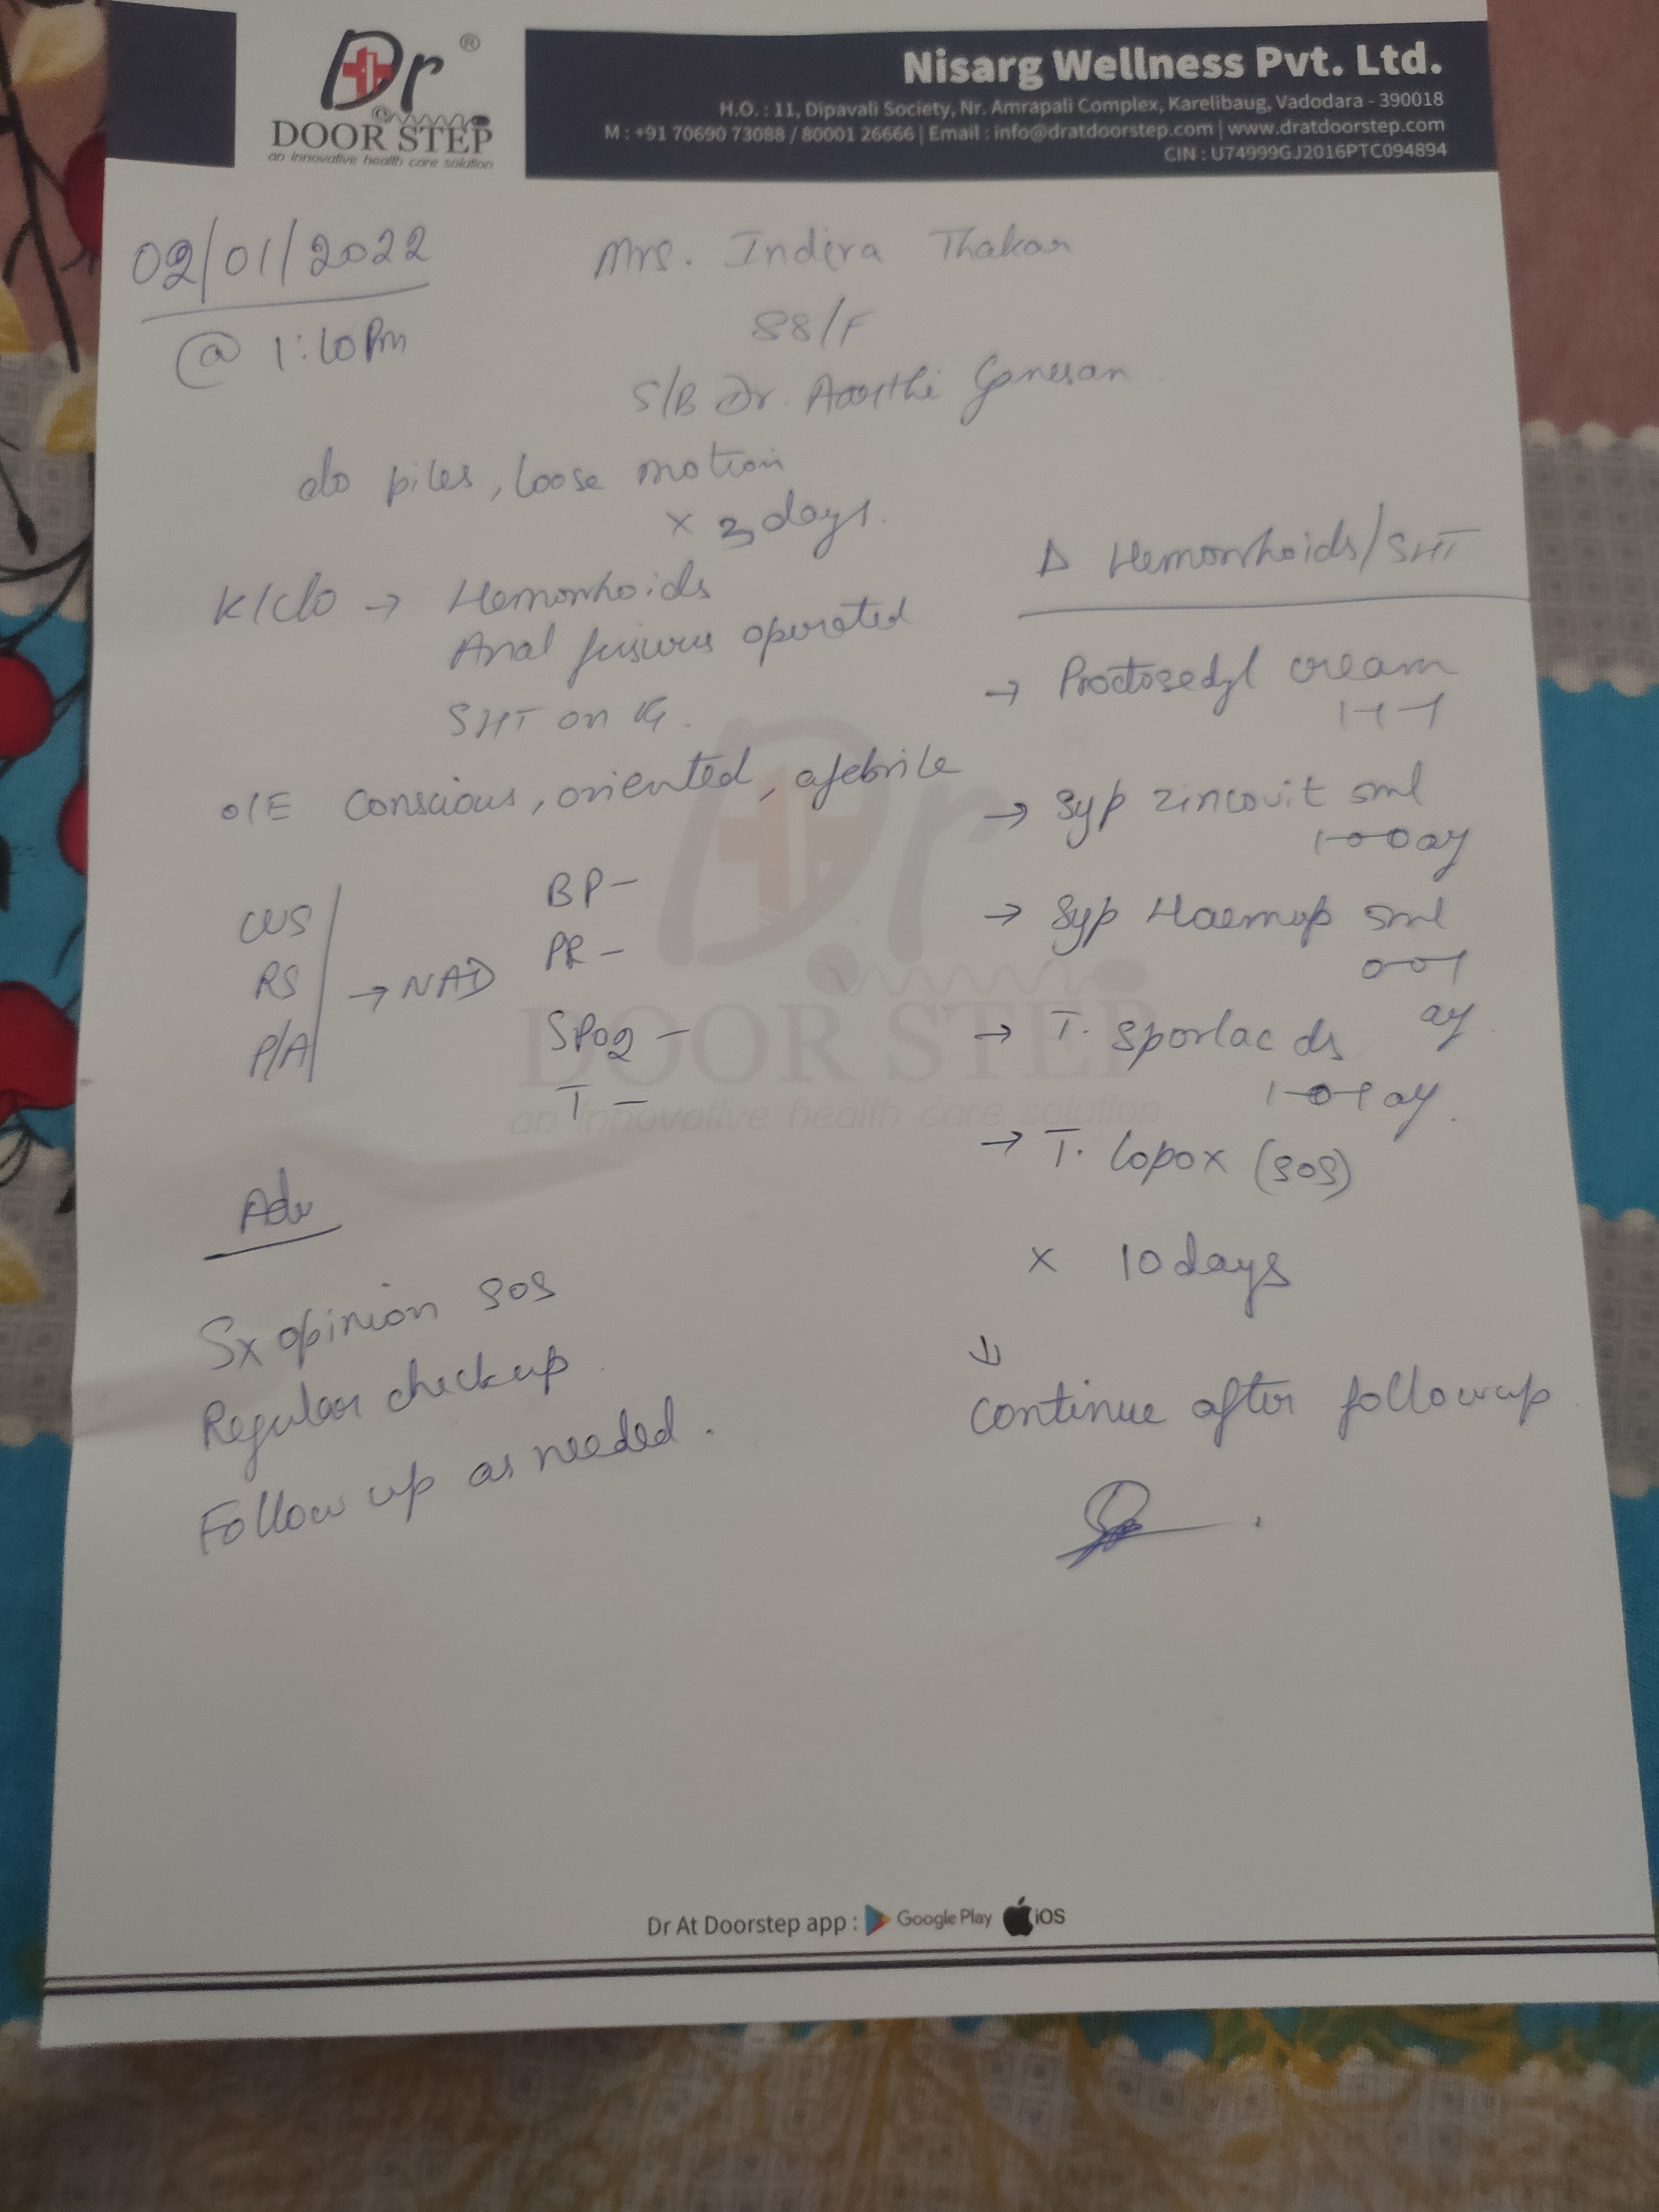 Dr ®
@
DOOR STEP
an innovative health care solution
Nisarg Wellness Pvt. Ltd.
H.O. : 11, Dipavali Society, Nr. Amrapali Complex, Karelibaug, Vadodara - 390018
M : +91 70690 73088 / 80001 26666 | Email : info@dratdoorstep.com | www.dratdoorstep.com
CIN : U74999GJ2016PTC094894
02/01/2022
@ 1:10 Pm
Mrs. Indira Thakar
88/F
S/B Dr. Aarthi Ganesan
c/o piles, loose motion
x 3 days.
K/c/o → Hemorrhoids
Anal fissures operated
SHT on
O/E Conscious, oriented, afebrile
CVS
RS
P/A
→ NAD
BP -
PR -
SPO2 -
T -
Adv
Sx opinion SOS
Regular checkup
Follow up as needed.
Δ Hemorrhoids/SHT
→ Proctosedyl cream
1-1-1
→ Syp zincovit 5ml
1-0-0
→ Syp Haemup 5ml
0-0-1
→ T. Sporlac ds
1-0-1
→ T. Lopox (SOS)
x 10 days
↓
continue after followup
Dr
DOOR STEP
an innovative health care solution
Dr At Doorstep app : Google Play iOS